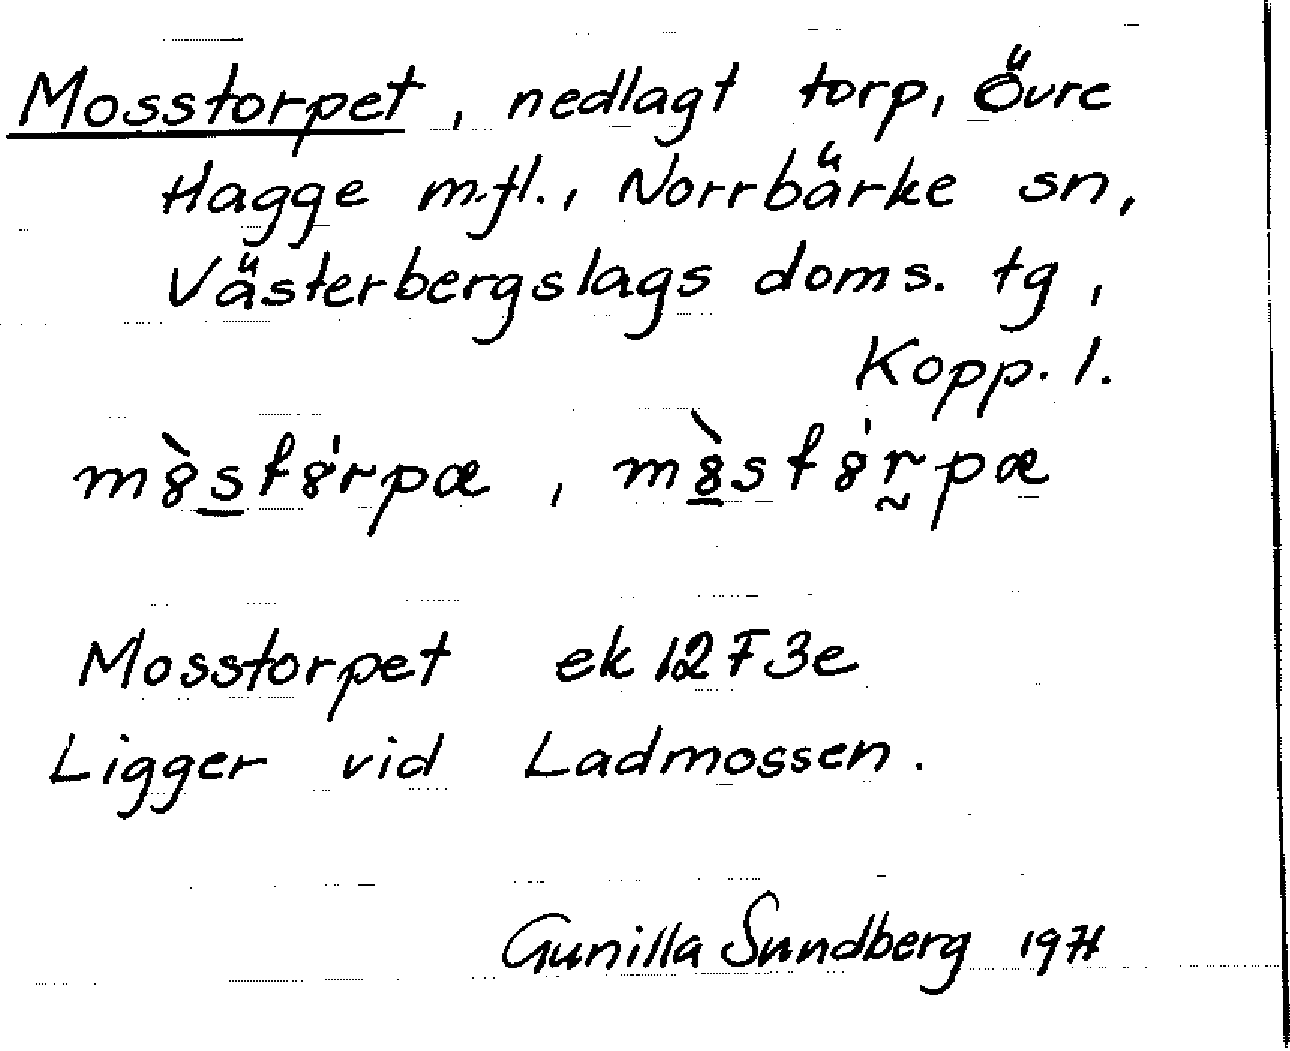 Mosstorpet, nedlagt torp, Övre
Hagge m.fl., Norrbärke sn,
Västerbergslags doms. tg,
Kopp. l.
Mosstorpet ek 12F3e
Ligger vid Ladmossen.
Gunilla Sundberg 1971